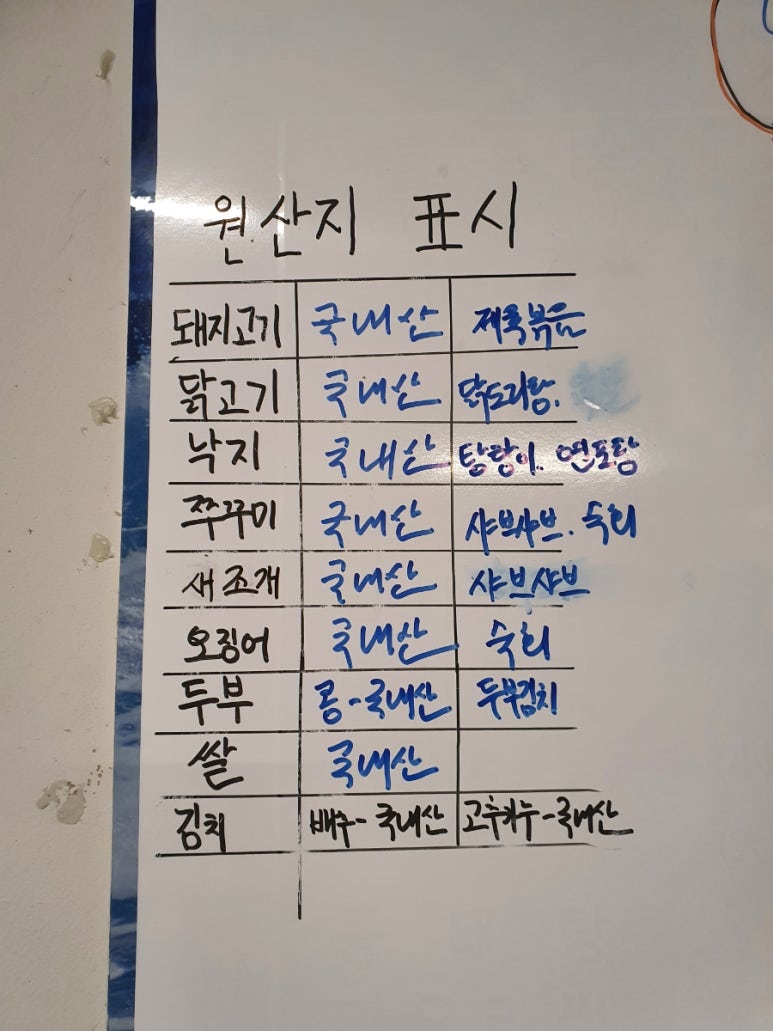 원산지 표시
돼지고기 국내산 제육볶음
닭고기 국내산 닭도리탕.
낙지 국내산 탕탕이. 연포탕
쭈꾸미 국내산 샤브샤브. 숙회
새조개 국내산 샤브샤브
오징어 국내산 숙회
두부 콩-국내산 두부김치
쌀 국내산
김치 배추-국내산 고추가루-국내산